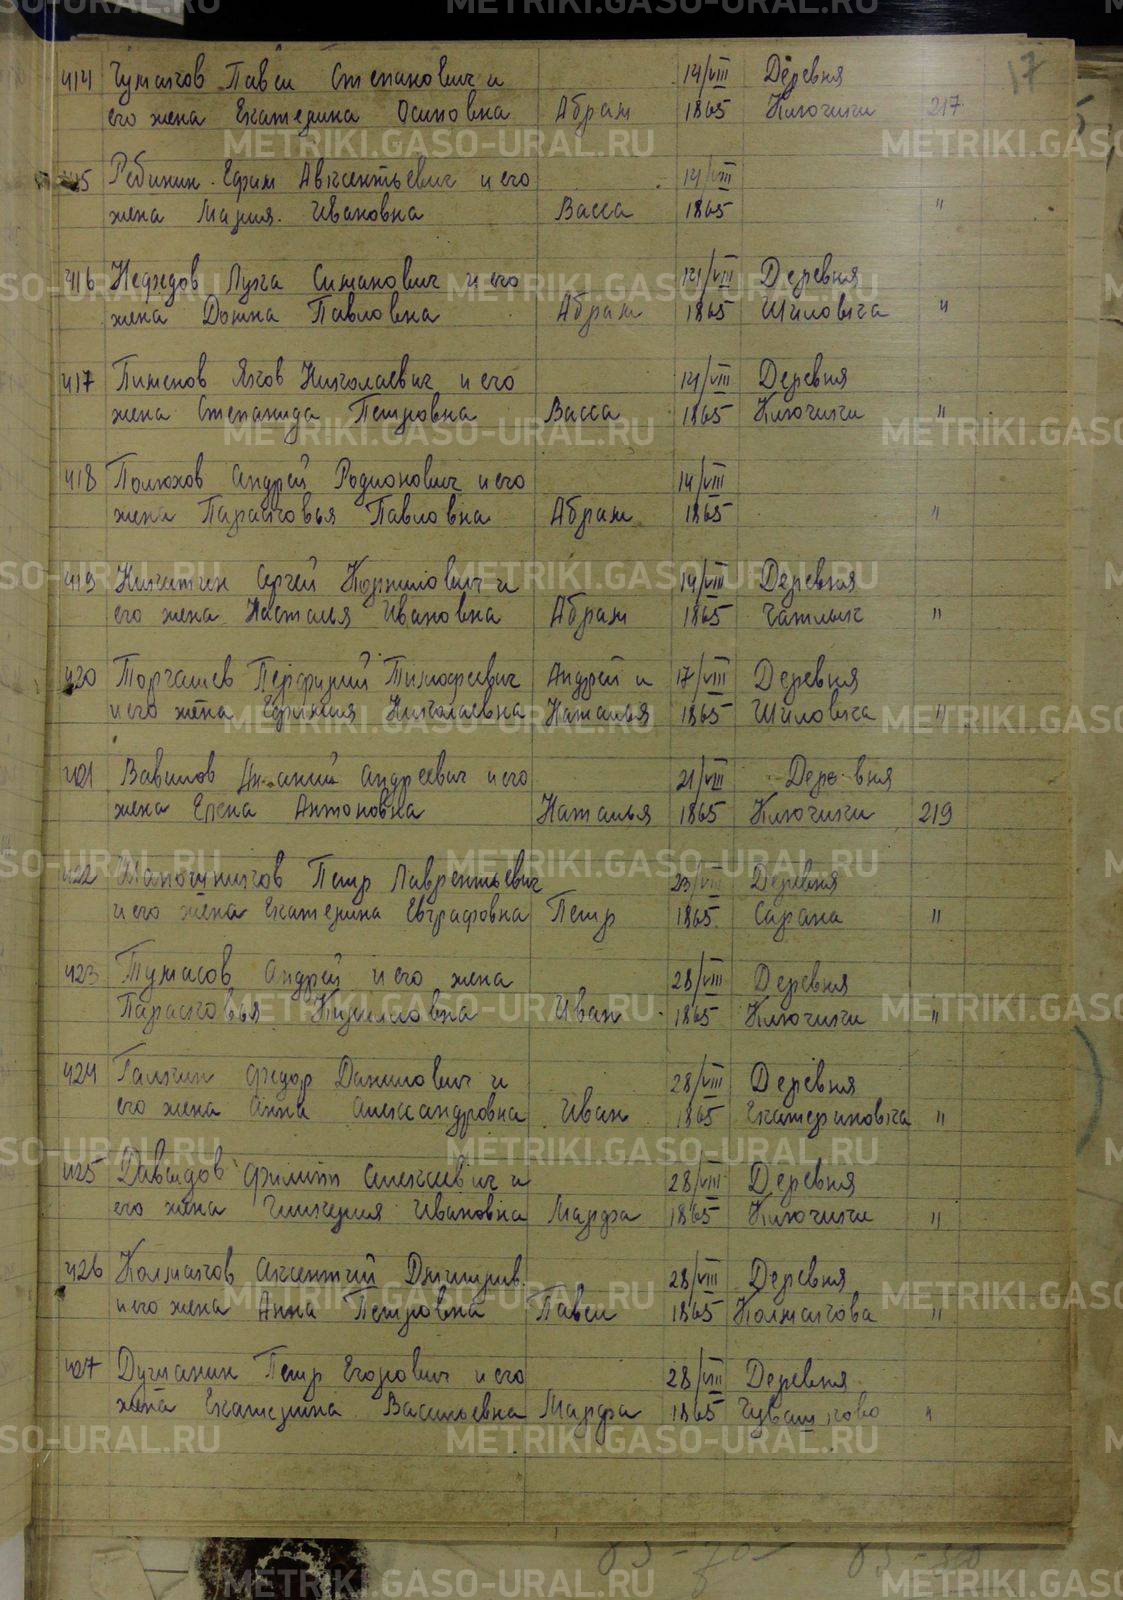 17
414 Чумаков Павел Степанович и 14/VIII Деревня
его жена Екатерина Осиповна Абрам 1865 Ключики 217
Ребинин Ефим Авксентьевич и его 14/VIII
жена Мария Ивановна Васса 1865 "
416 Нефедов Лука Симанович и его 14/VIII Деревня
жена Домна Павловна Абрам 1865 Шиловка "
417 Пименов Яков Николаевич и его 14/VIII Деревня
жена Степанида Петровна Васса 1865 Ключики "
418 Полюхов Андрей Родионович и его 14/VIII
жена Парасковья Павловна Абрам 1865 "
419 Никитин Сергей Корнилович и 14/VIII Деревня
его жена Наталья Ивановна Абрам 1865 Чатлык "
420 Торгашев Перфирий Тимофеевич Андрей и 17/VIII Деревня
и его жена Ефимия Николаевна Наталья 1865 Шиловка "
421 Вавилов Андреевич и его 21/VIII Деревня
жена Елена Антоновна Наталья 1865 Ключики 219
422 Шапочников Петр Лаврентьевич 23/VIII Деревня
и его жена Екатерина Евграфовна Петр 1865 Сарана "
423 Тумасов Андрей и его жена 28/VIII Деревня
Парасковья Кириловна Иван 1865 Ключики "
424 Галкин Федор Данилович и 28/VIII Деревня
его жена Анна Александровна Иван 1865 Екатериновка "
425 Давыдов Филипп Алексеевич и 28/VIII Деревня
его жена Гликерия Ивановна Марфа 1865 Ключики "
426 Колмаков Аксентий Дмитрив. 28/VIII Деревня
и его жена Анна Петровна Павел 1865 Колмакова "
427 Дугманин Петр Егорович и его 28/VIII Деревня
жена Екатерина Васильевна Марфа 1865 Чувашково "
METRIKI.GASO-URAL.RU